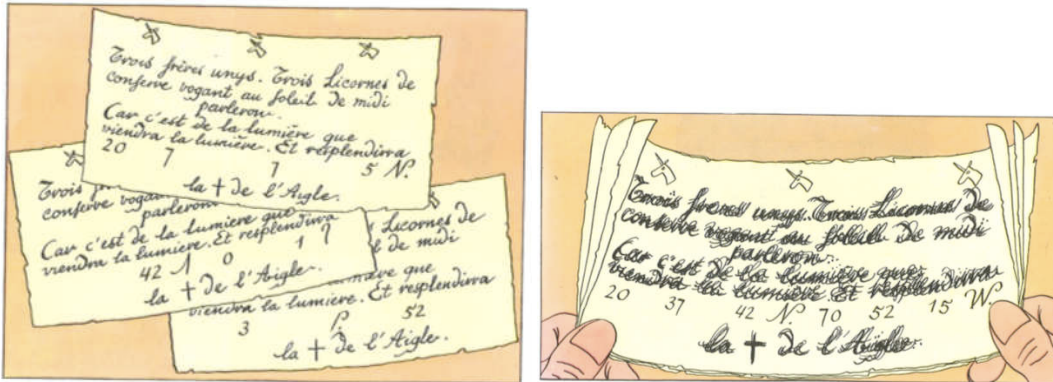 Trois frères unys. Trois Licornes de
conſerve vogant au ſoleil de midi
parleron.
Car c'est de la lumière que
viendra la lumière. Et resplendira
20 7 7 5 N.
la † de l'Aigle.
Trois
conſerve
parleron
Car c'est de la lumiere que
viendra la lumiere. Et resplendira
42 0 1
la † de l'Aigle.
Licornes de
de midi
que
viendra la lumiere. Et resplendira
3 52
la † de l'Aigle.
Trois freres unys. Trois Licornes de
conſerve vogant au ſoleil de midi
parleron.
Car c'est de la lumière que
viendra la lumière Et resplendira
20 37 42 N. 70 52 15 W.
la † de l'Aigle.